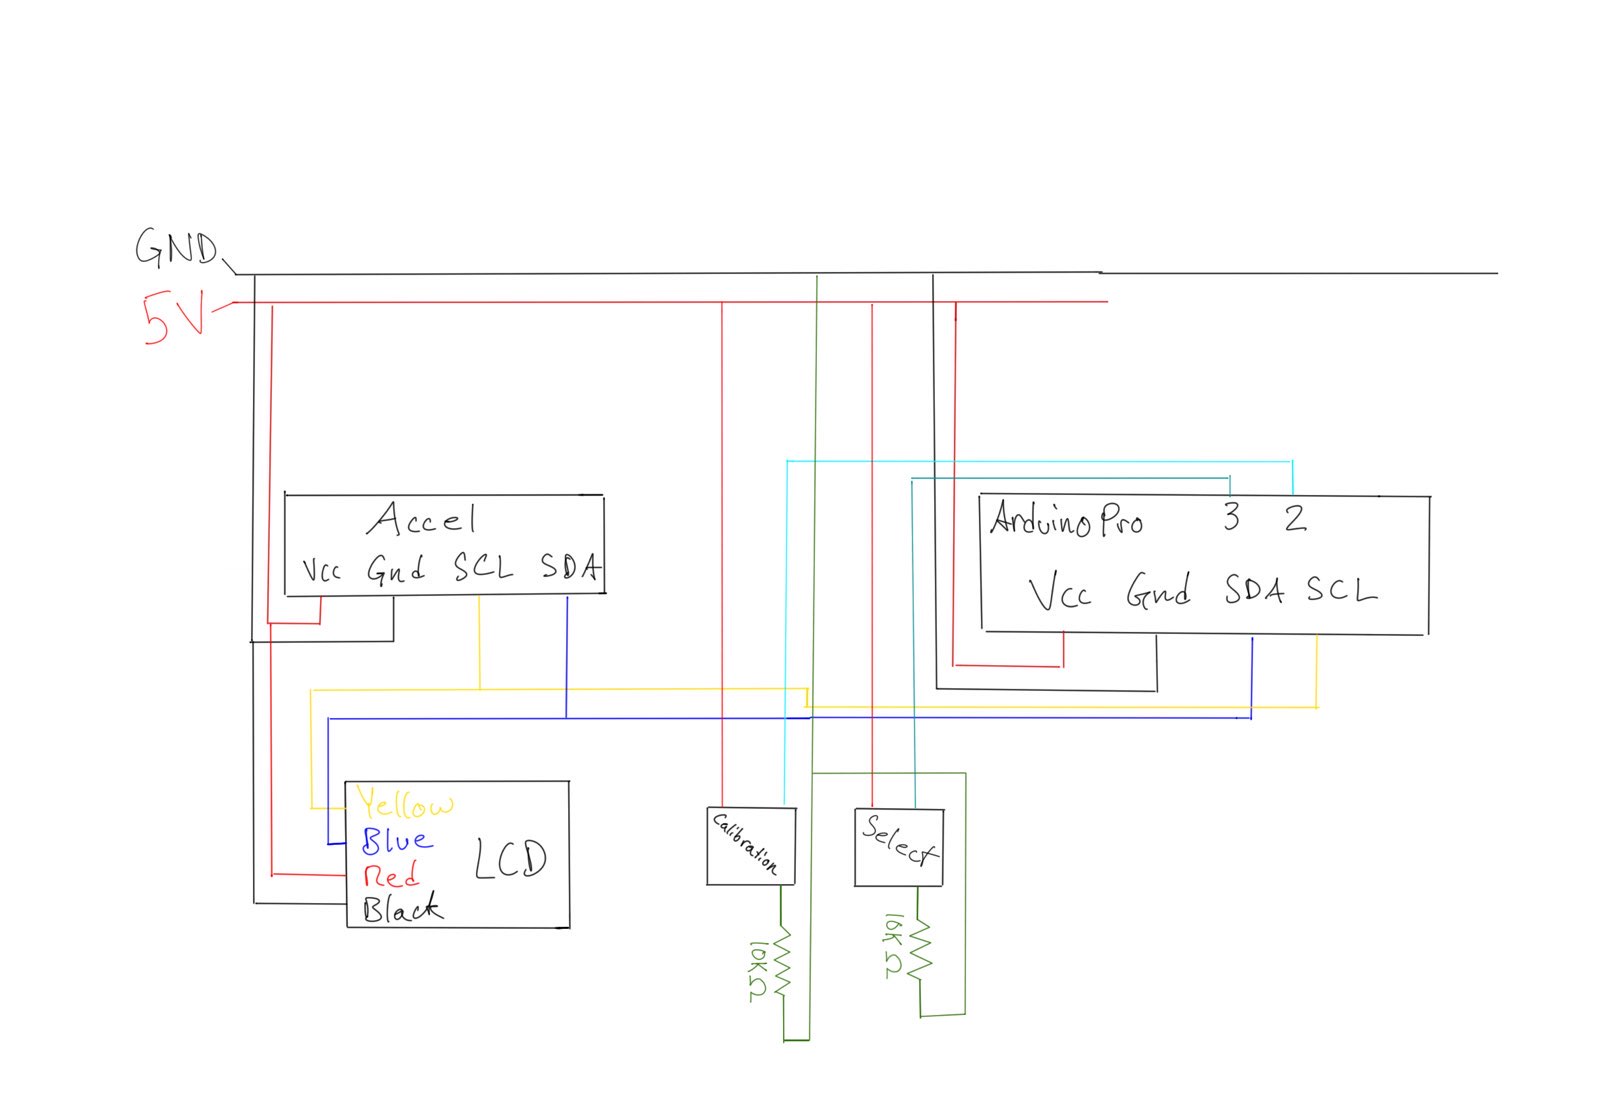 GND
5V
Accel
Vcc Gnd SCL SDA
Arduino Pro 3 2
Vcc Gnd SDA SCL
Yellow
Blue
Red
Black
LCD
Calibration
Select
10KΩ
10KΩ